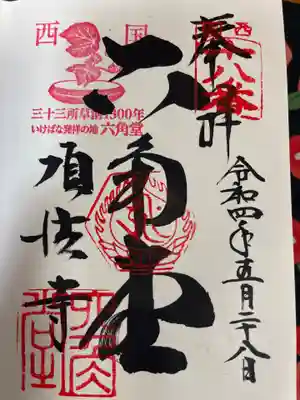 奉拝
西国
十八番
令和四年五月二十八日
西国
三十三所草創1300年
いけばな発祥の地 六角堂
六角堂
頂法寺